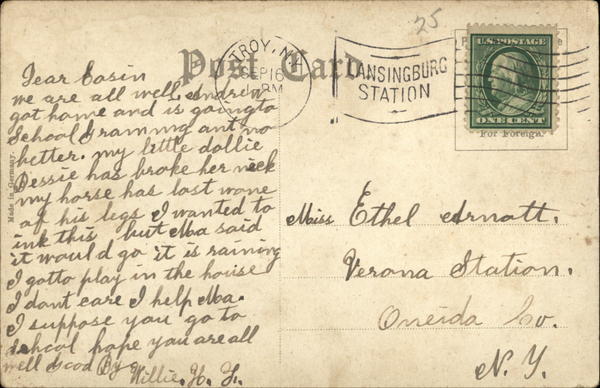 Post Card
TROY, N.Y.
SEP 16
LANSINGBURG
STATION
25
U.S. POSTAGE
ONE CENT
For Foreign.
Made in Germany.
Dear Cosin
we are all well
got home and is going to
School Graming ant no
better. my little dollie
Bessie has broke her neck
my horse has lost wone
of his legs I wanted to
ink this but Ma said
it would go it is raining
I gotto play in the house
I dont care I help Ma.
I suppose you go to
school hope you are all
well Good By
Willie. H. F.
Miss Ethel Arnott.
Verona Station.
Oneida Co.
N. Y.